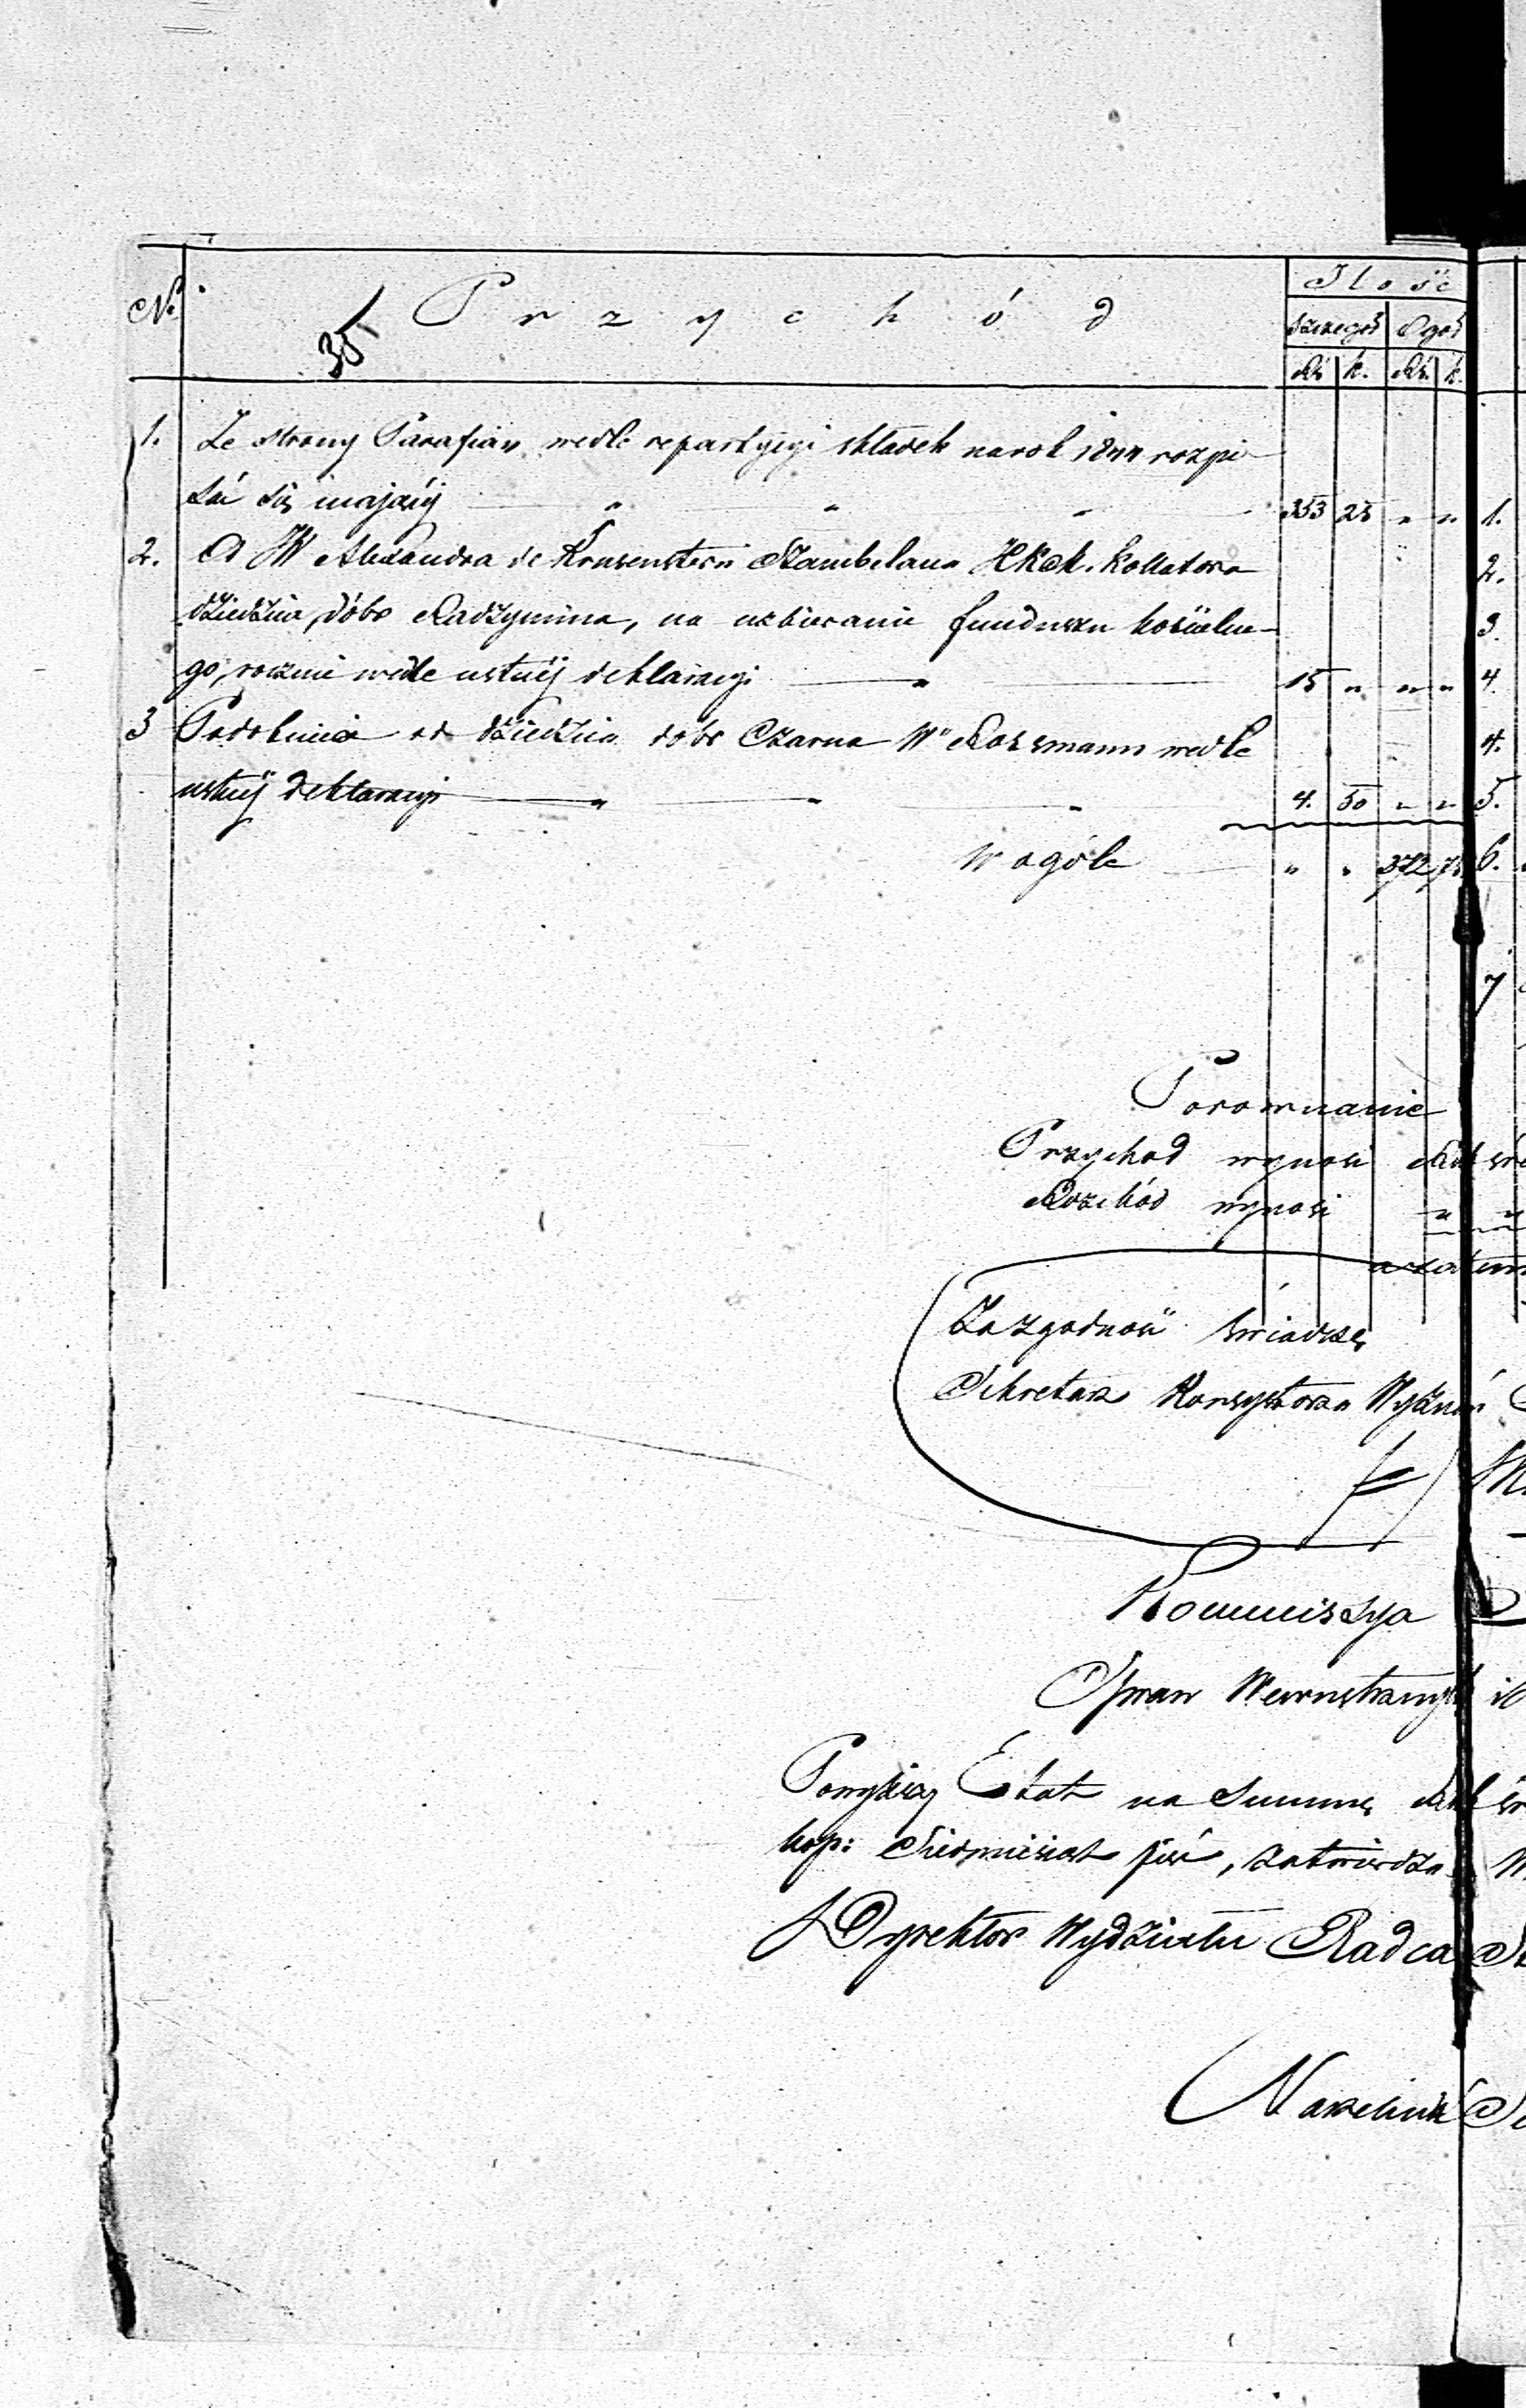 Ilość
No. Przychód Szczegół Ogół
35 Rś k. Rś. k.
1. Ze strony Parafian wedle repartycyi składek na rok 1844 rozpi-
sać się mającéj " " " 353 25 " " 1.
2. Od JW Alexandra de Krusenstern Szambelana Kollatora 2.
dziedzica dóbr Radzymina, na uzbieranie funduszu kościelne- 3.
go, rocznie wedle ustnéj deklaracyi " 15 " " " 4.
3 Podobnież od dziedzica dóbr Czarna Wo Rossmann wedle 4.
ustnéj deklaracyi " " " 4. 50 " " 5.
W ogóle " " 372 75 6.
7
Porownanie
Przychod wynosi Rub sre
Rozchód wynosi " "
a zatem
Za zgodność świadczę
Sekretarz Konsystorza Wyznań
Kommissya
Spraw Wewnętrznych i
Powyższy Etat na Summę Rub sr
kop: Siedmdziesiąt pięć, zatwierdza
Dyrektor Wydziału Radca
Naczelnik